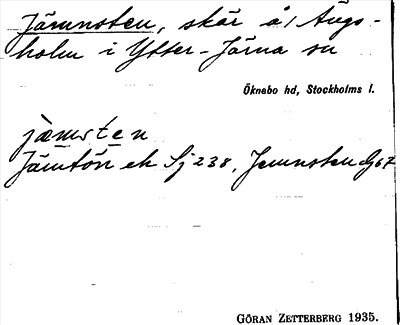 Jämnsten, skär å Ängs-
holm i Ytter-Järna sn
Öknebo hd, Stockholms l.
jämsten
Jämtön ek Sj 238, Jemnsten
GÖRAN ZETTERBERG 1935.